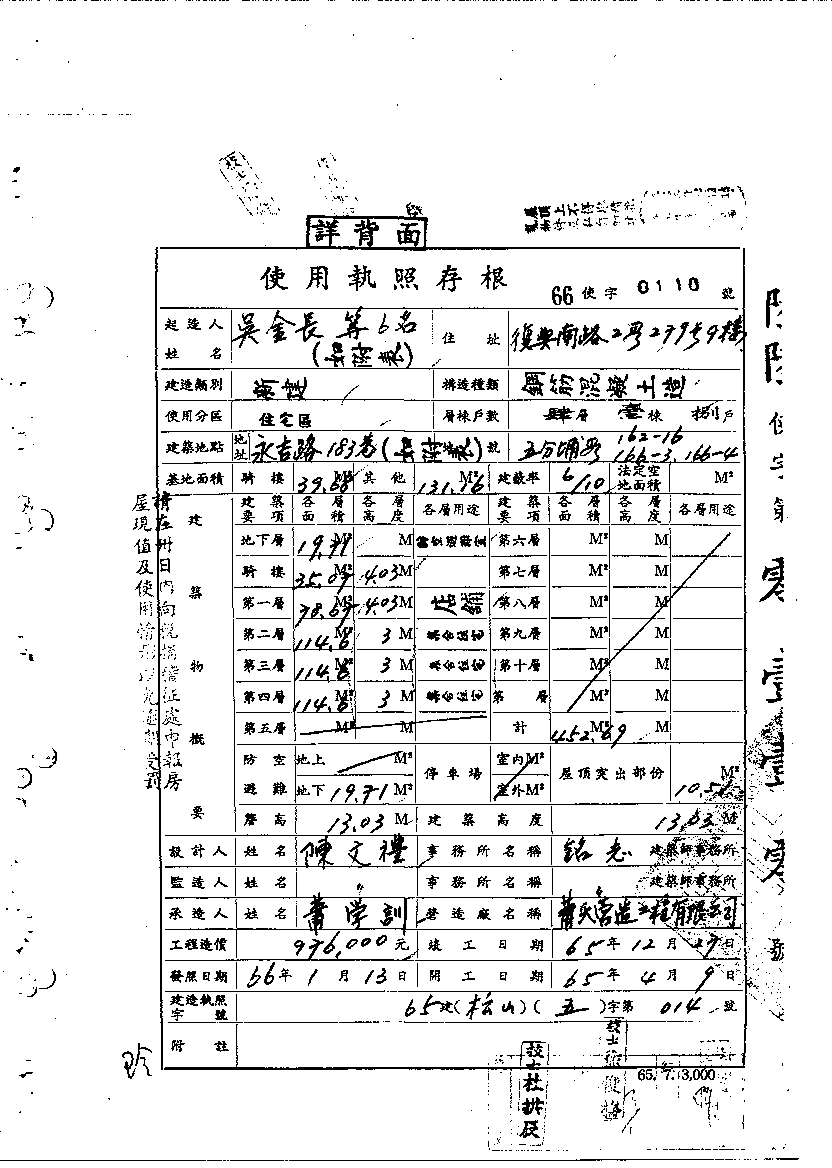 詳背面
使用執照存根
66使字0110號
起造人姓名 吳金長等6名 住址 復興南路2段279號9樓
建造類別 新建 構造種類 鋼筋混凝土造
使用分區 住宅區 層棟戶數 肆層 壹棟 捌戶
建築地點 地址 永吉路183巷 號 五分埔段 162-16 166-3, 166-4
基地面積 騎樓 39.68 M² 其他 131.16 M² 建蔽率 6/10 法定空地面積 M²
建築物概要 建築要項 各層面積 各層高度 各層用途 建築要項 各層面積 各層高度 各層用途
地下層 19.71 M 第六層 M² M
騎樓 35.07 M² 4.03M 第七層 M² M
第一層 78.67 M² 4.03M 店鋪 第八層 M² M
第二層 114.8 M² 3M 集合住宅 第九層 M² M
第三層 114.8 M² 3M 集合住宅 第十層 M² M
第四層 114.8 M² 3M 集合住宅 第 層 M² M
第五層 M² M 計 M² M
防空避難 地上 M² 停車場 室內M² 屋頂突出部份 M²
地下 19.71 M² 室外M²
簷高 13.03 M 建築高度 13.03 M
設計人 姓名 陳文禮 事務所名稱 銘志 建築師事務所
監造人 姓名 〃 事務所名稱 建築師事務所
承造人 姓名 蕭學訓 營造廠名稱 蕭氏營造工程有限公司
工程造價 976,000元 竣工日期 65年12月27日
發照日期 66年1月13日 開工日期 65年4月9日
建造執照字號 65建(松山)(五)字第014號
附註
65. 7. 3,000
請在卅日內向稅捐稽征處申報房
屋現值及使用情形以免逾期受罰
使字第零壹壹零號
技士杜拱辰